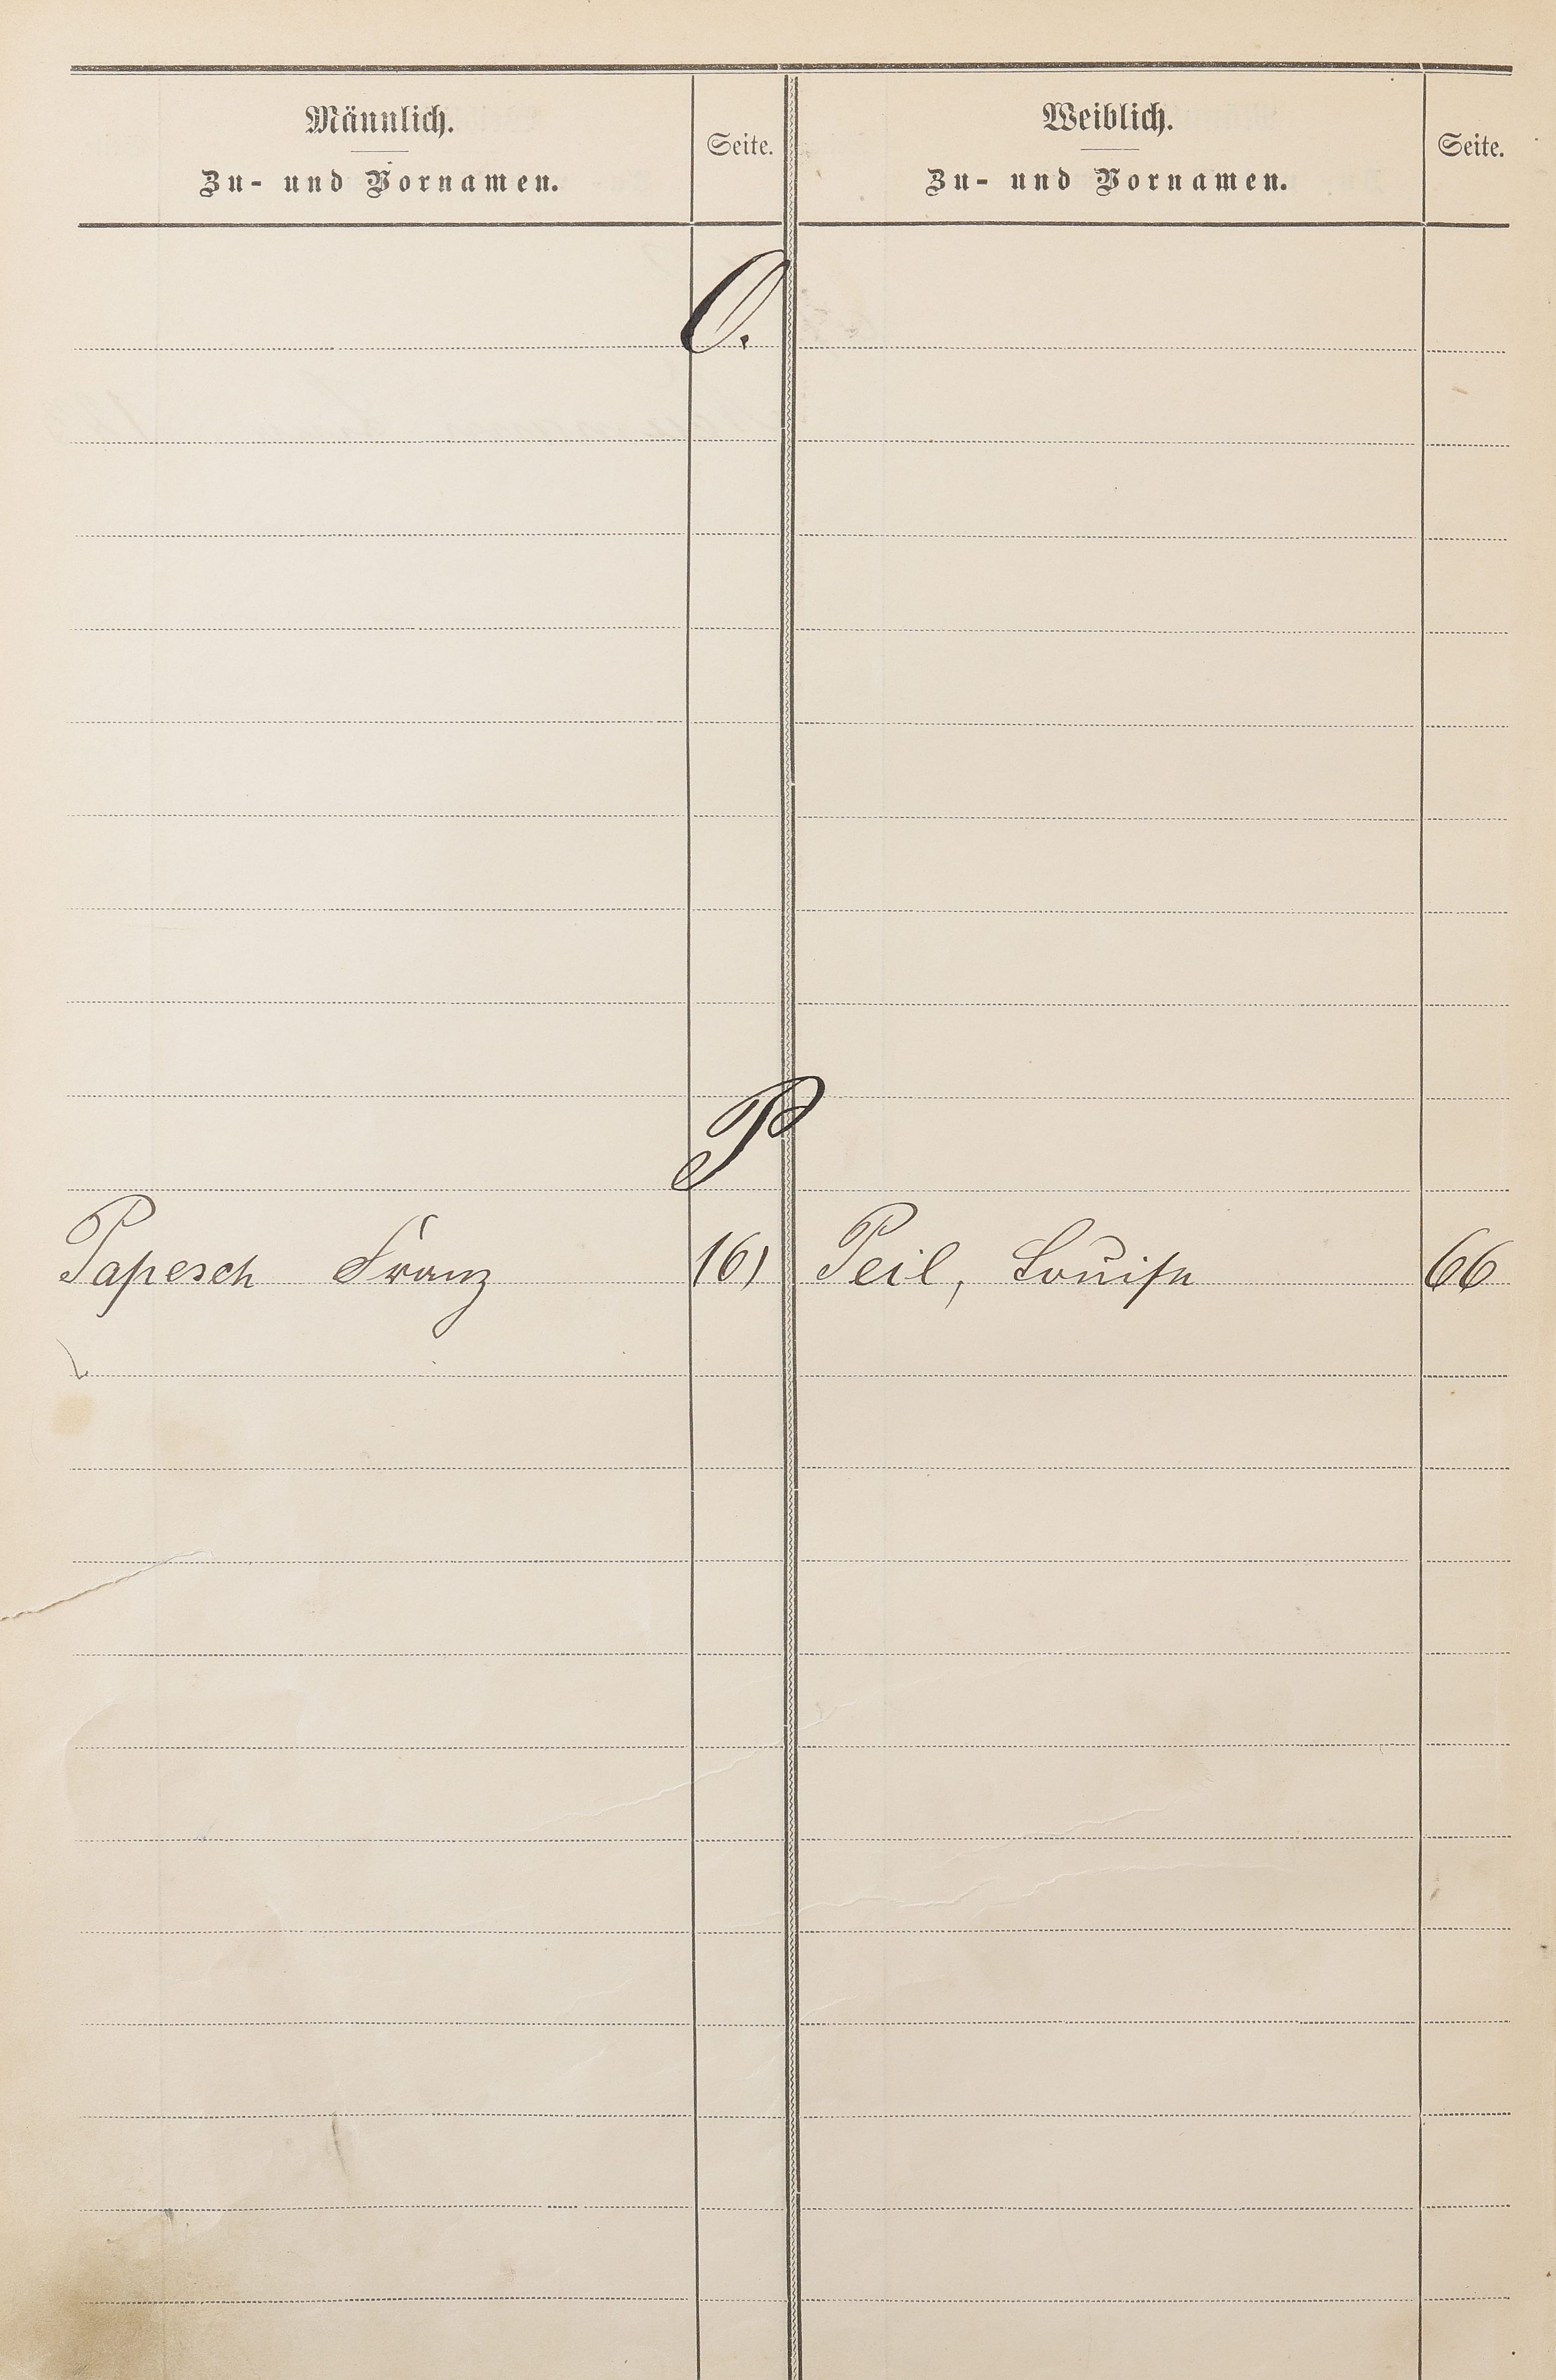 Männlich.
Zu- und Vornamen.
Seite.
Weiblich.
Zu- und Vornamen.
Seite.
O.
P
Papesch Franz 161 Peil, Louise 66